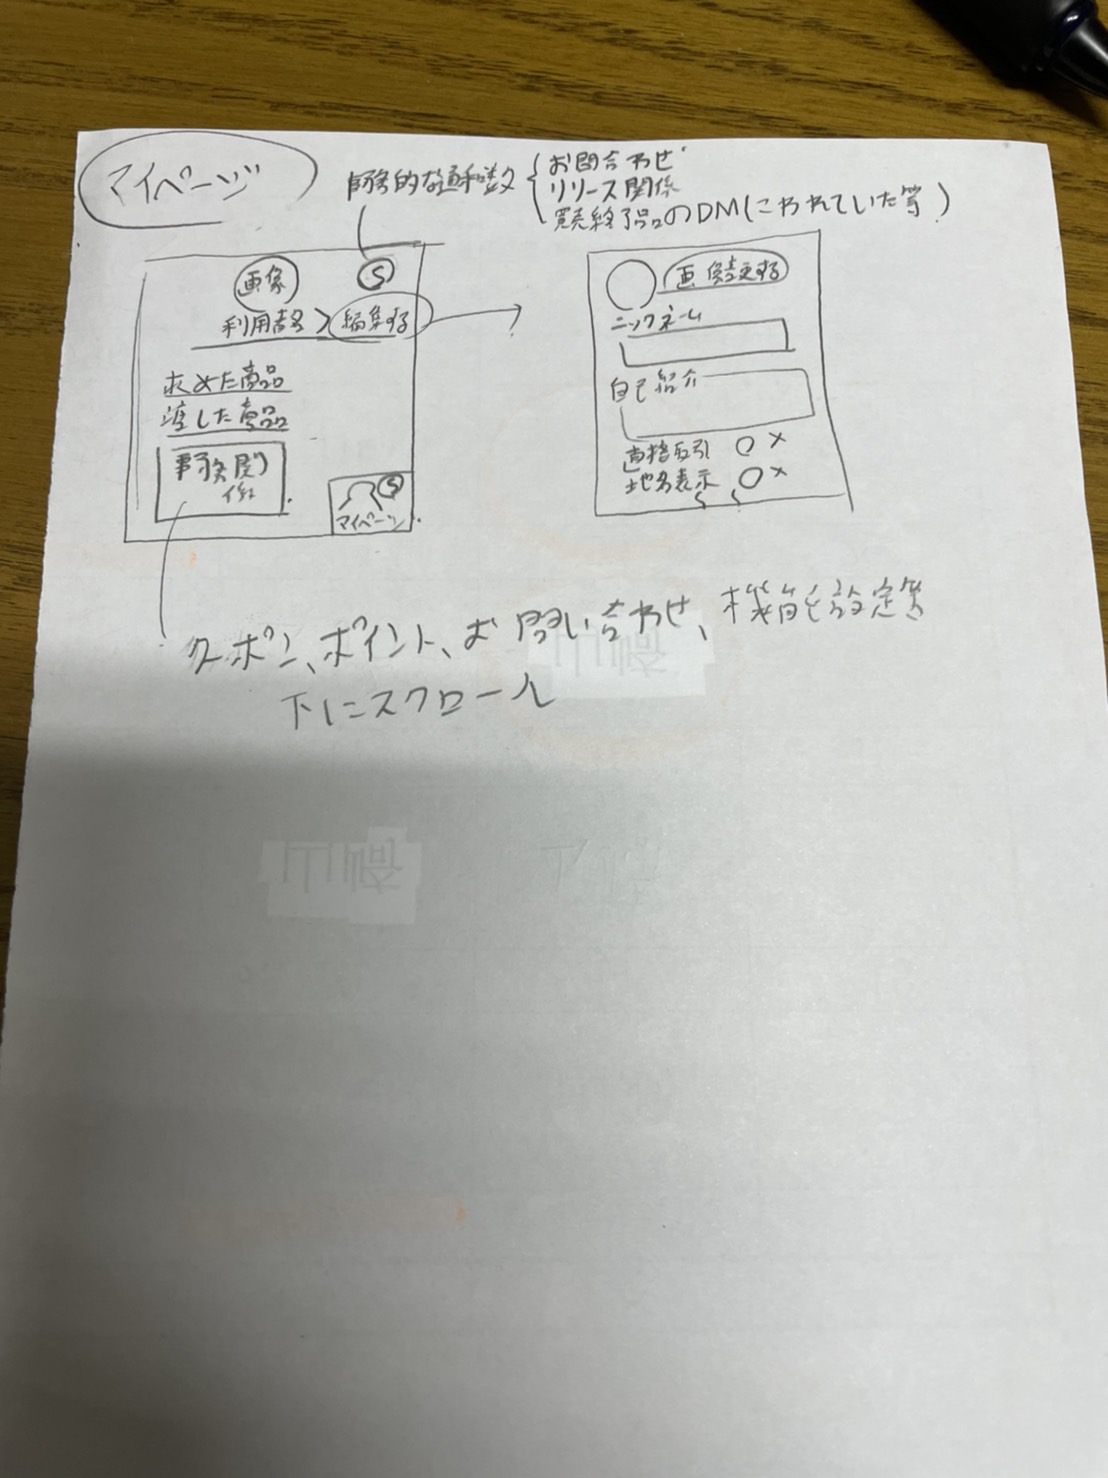 マイページ
事務的な通知数
お問合わせ
リリース関係
売終了品のDM(こわれていた等)
画像
5
利用者名 > 編集する
求めた商品
渡した商品
事務関係
5
マイページ
画像変更する
ニックネーム
自己紹介
直接取引 ○ ×
地名表示 ○ ×
クーポン、ポイント、お問い合わせ、機能設定等
下にスクロール